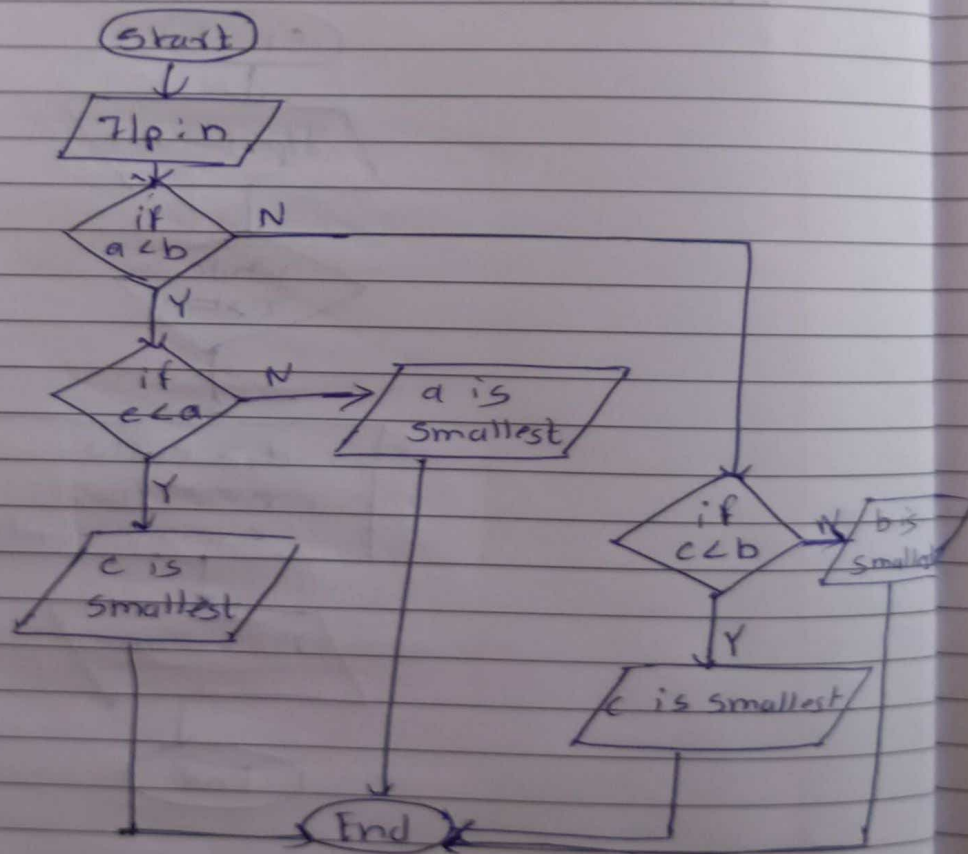 Start
I/p : n
if
a < b
N
Y
if
c < a
N
a is
smallest
Y
c is
smallest
if
c < b
N
b is
smallest
Y
c is smallest
End